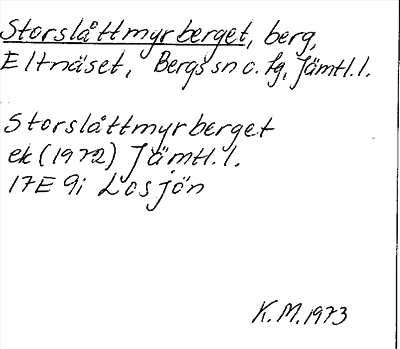 Storslåttmyrberget, berg,
Eltnäset, Bergs sn o. fg, Jämtl.l.
Storslåttmyrberget
ek (1972) Jämtl.l.
17E 9i Losjön
K.M.1973